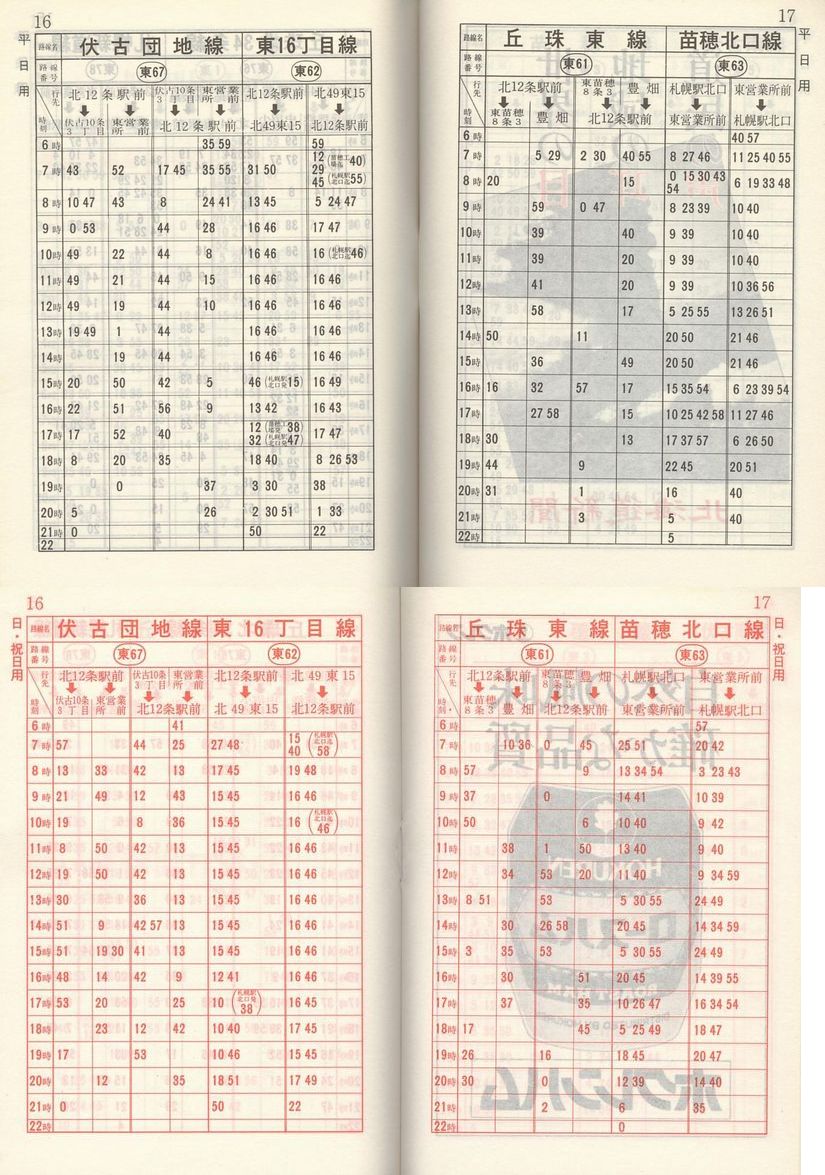 16
平日用
路線名 伏古団地線 東16丁目線
路線番号 東67 東62
行先 時刻 北12条駅前 伏古10条3丁目 東営業所前 北12条駅前 北49東15
伏古10条3丁目 東営業所前 北12条駅前 北49東15 北12条駅前
6時 35 59 59
7時 43 52 17 45 35 55 31 50 12 29 45 40) (札幌駅北口迄55)
8時 10 47 43 8 24 41 13 45 5 24 47
9時 0 53 44 28 16 46 17 47
10時 49 22 44 8 16 46 16 (札幌駅北口迄46)
11時 49 21 44 15 16 46 16 46
12時 49 19 44 10 16 46 16 46
13時 19 49 1 44 16 46 16 46
14時 19 44 16 46 16 46
15時 20 50 42 5 46 (札幌駅北口発15) 16 49
16時 22 51 56 9 13 42 16 43
17時 17 52 40 12 38) 32 (札幌駅北口発47) 17 47
18時 8 20 35 18 40 8 26 53
19時 0 37 3 30 38
20時 5 26 2 30 51 1 33
21時 0 50 22
22
17
平日用
路線名 丘珠東線 苗穂北口線
路線番号 東61 東63
行先 時刻 北12条駅前 東苗穂8条3 豊畑 札幌駅北口 東営業所前
東苗穂8条3 豊畑 北12条駅前 東営業所前 札幌駅北口
6時 40 57
7時 5 29 2 30 40 55 8 27 46 11 25 40 55
8時 20 15 0 15 30 43 54 6 19 33 48
9時 59 0 47 8 23 39 10 40
10時 39 40 9 39 10 40
11時 39 20 9 39 10 40
12時 41 20 9 39 10 36 56
13時 58 17 5 25 55 13 26 51
14時 50 11 20 50 21 46
15時 36 49 20 50 21 46
16時 16 32 57 17 15 35 54 6 23 39 54
17時 27 58 15 10 25 42 58 11 27 46
18時 30 13 17 37 57 6 26 50
19時 44 9 22 45 20 51
20時 31 1 16 40
21時 3 5 40
22時 5
16
日・祝日用
路線名 伏古団地線 東16丁目線
路線番号 東67 東62
行先 時刻 北12条駅前 伏古10条3丁目 東営業所前 北12条駅前 北49東15
伏古10条3丁目 東営業所前 北12条駅前 北49東15 北12条駅前
6時 41
7時 57 44 25 27 48 15 40 (札幌駅北口迄58)
8時 13 33 42 13 17 45 19 48
9時 21 49 12 43 15 45 16 46
10時 19 8 36 15 45 16 (札幌駅北口迄46)
11時 8 50 42 13 15 45 16 46
12時 19 50 42 13 15 45 16 46
13時 30 36 13 15 45 16 46
14時 51 9 42 57 13 15 45 16 46
15時 51 19 30 41 13 15 45 16 46
16時 48 14 42 9 12 41 16 46
17時 53 20 25 10 (札幌駅北口発38) 16 45
18時 23 12 42 10 40 17 45
19時 17 53 10 46 15 45
20時 12 35 18 51 17 49
21時 0 50 22
22時
17
日・祝日用
路線名 丘珠東線 苗穂北口線
路線番号 東61 東63
行先 時刻 北12条駅前 東苗穂8条3 豊畑 札幌駅北口 東営業所前
東苗穂8条3 豊畑 北12条駅前 東営業所前 札幌駅北口
6時 57
7時 10 36 0 45 25 51 20 42
8時 57 9 13 34 54 3 23 43
9時 37 0 14 41 10 39
10時 50 6 10 40 9 42
11時 38 1 50 13 40 9 40
12時 34 53 20 11 40 9 34 59
13時 8 51 53 5 30 55 24 49
14時 30 26 58 20 45 14 34 59
15時 3 35 53 5 30 55 24 49
16時 30 51 20 45 14 39 55
17時 37 35 10 26 47 16 34 54
18時 17 45 5 25 49 18 47
19時 26 16 18 45 20 47
20時 30 0 12 39 14 40
21時 2 6 35
22時 0